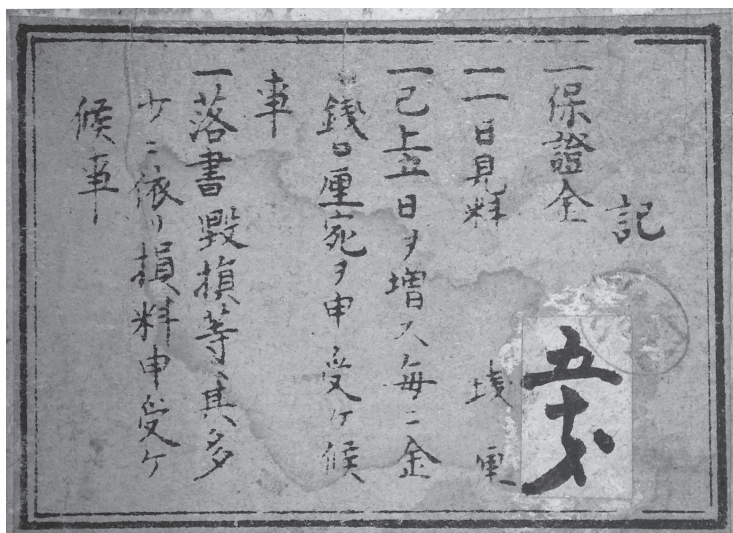 記
一保證金 五十銭
一一日見料 銭 厘
一已上五日ヲ増ス毎ニ金
銭 厘宛ヲ申受ケ候
事
一落書毀損等ハ其多
少ニ依リ損料申受ケ
候事